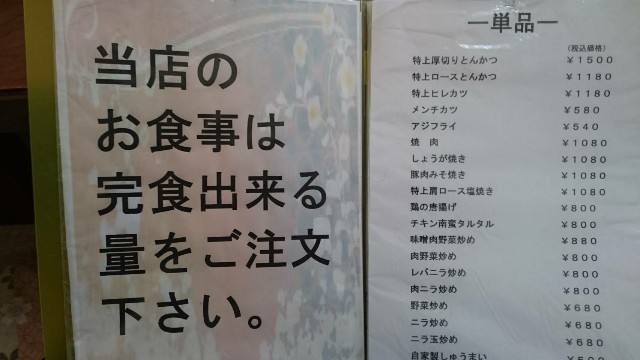 当店の
お食事は
完食出来る
量をご注文
下さい。
―単品―
(税込価格)
特上厚切りとんかつ ￥1500
特上ロースとんかつ ￥1180
特上ヒレカツ ￥1180
メンチカツ ￥580
アジフライ ￥540
焼 肉 ￥1080
しょうが焼き ￥1080
豚肉みそ焼き ￥1080
特上肩ロース塩焼き ￥1080
鶏の唐揚げ ￥800
チキン南蛮タルタル ￥800
味噌肉野菜炒め ￥880
肉野菜炒め ￥800
レバニラ炒め ￥800
肉ニラ炒め ￥800
野菜炒め ￥680
ニラ炒め ￥680
ニラ玉炒め ￥680
自家製しゅうまい